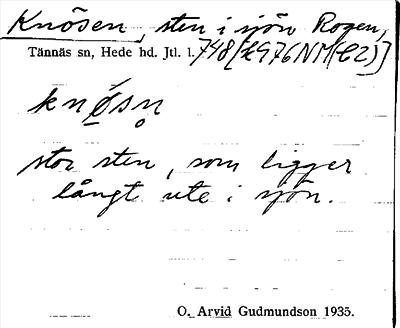 Knösen, sten i sjön Rogen,
Tännäs sn, Hede hd. Jtl. l. 748 [£976NM(C2)]
knǿsn̥
stor sten, som ligger
långt ute i sjön.
O. Arvid Gudmundson 1935.